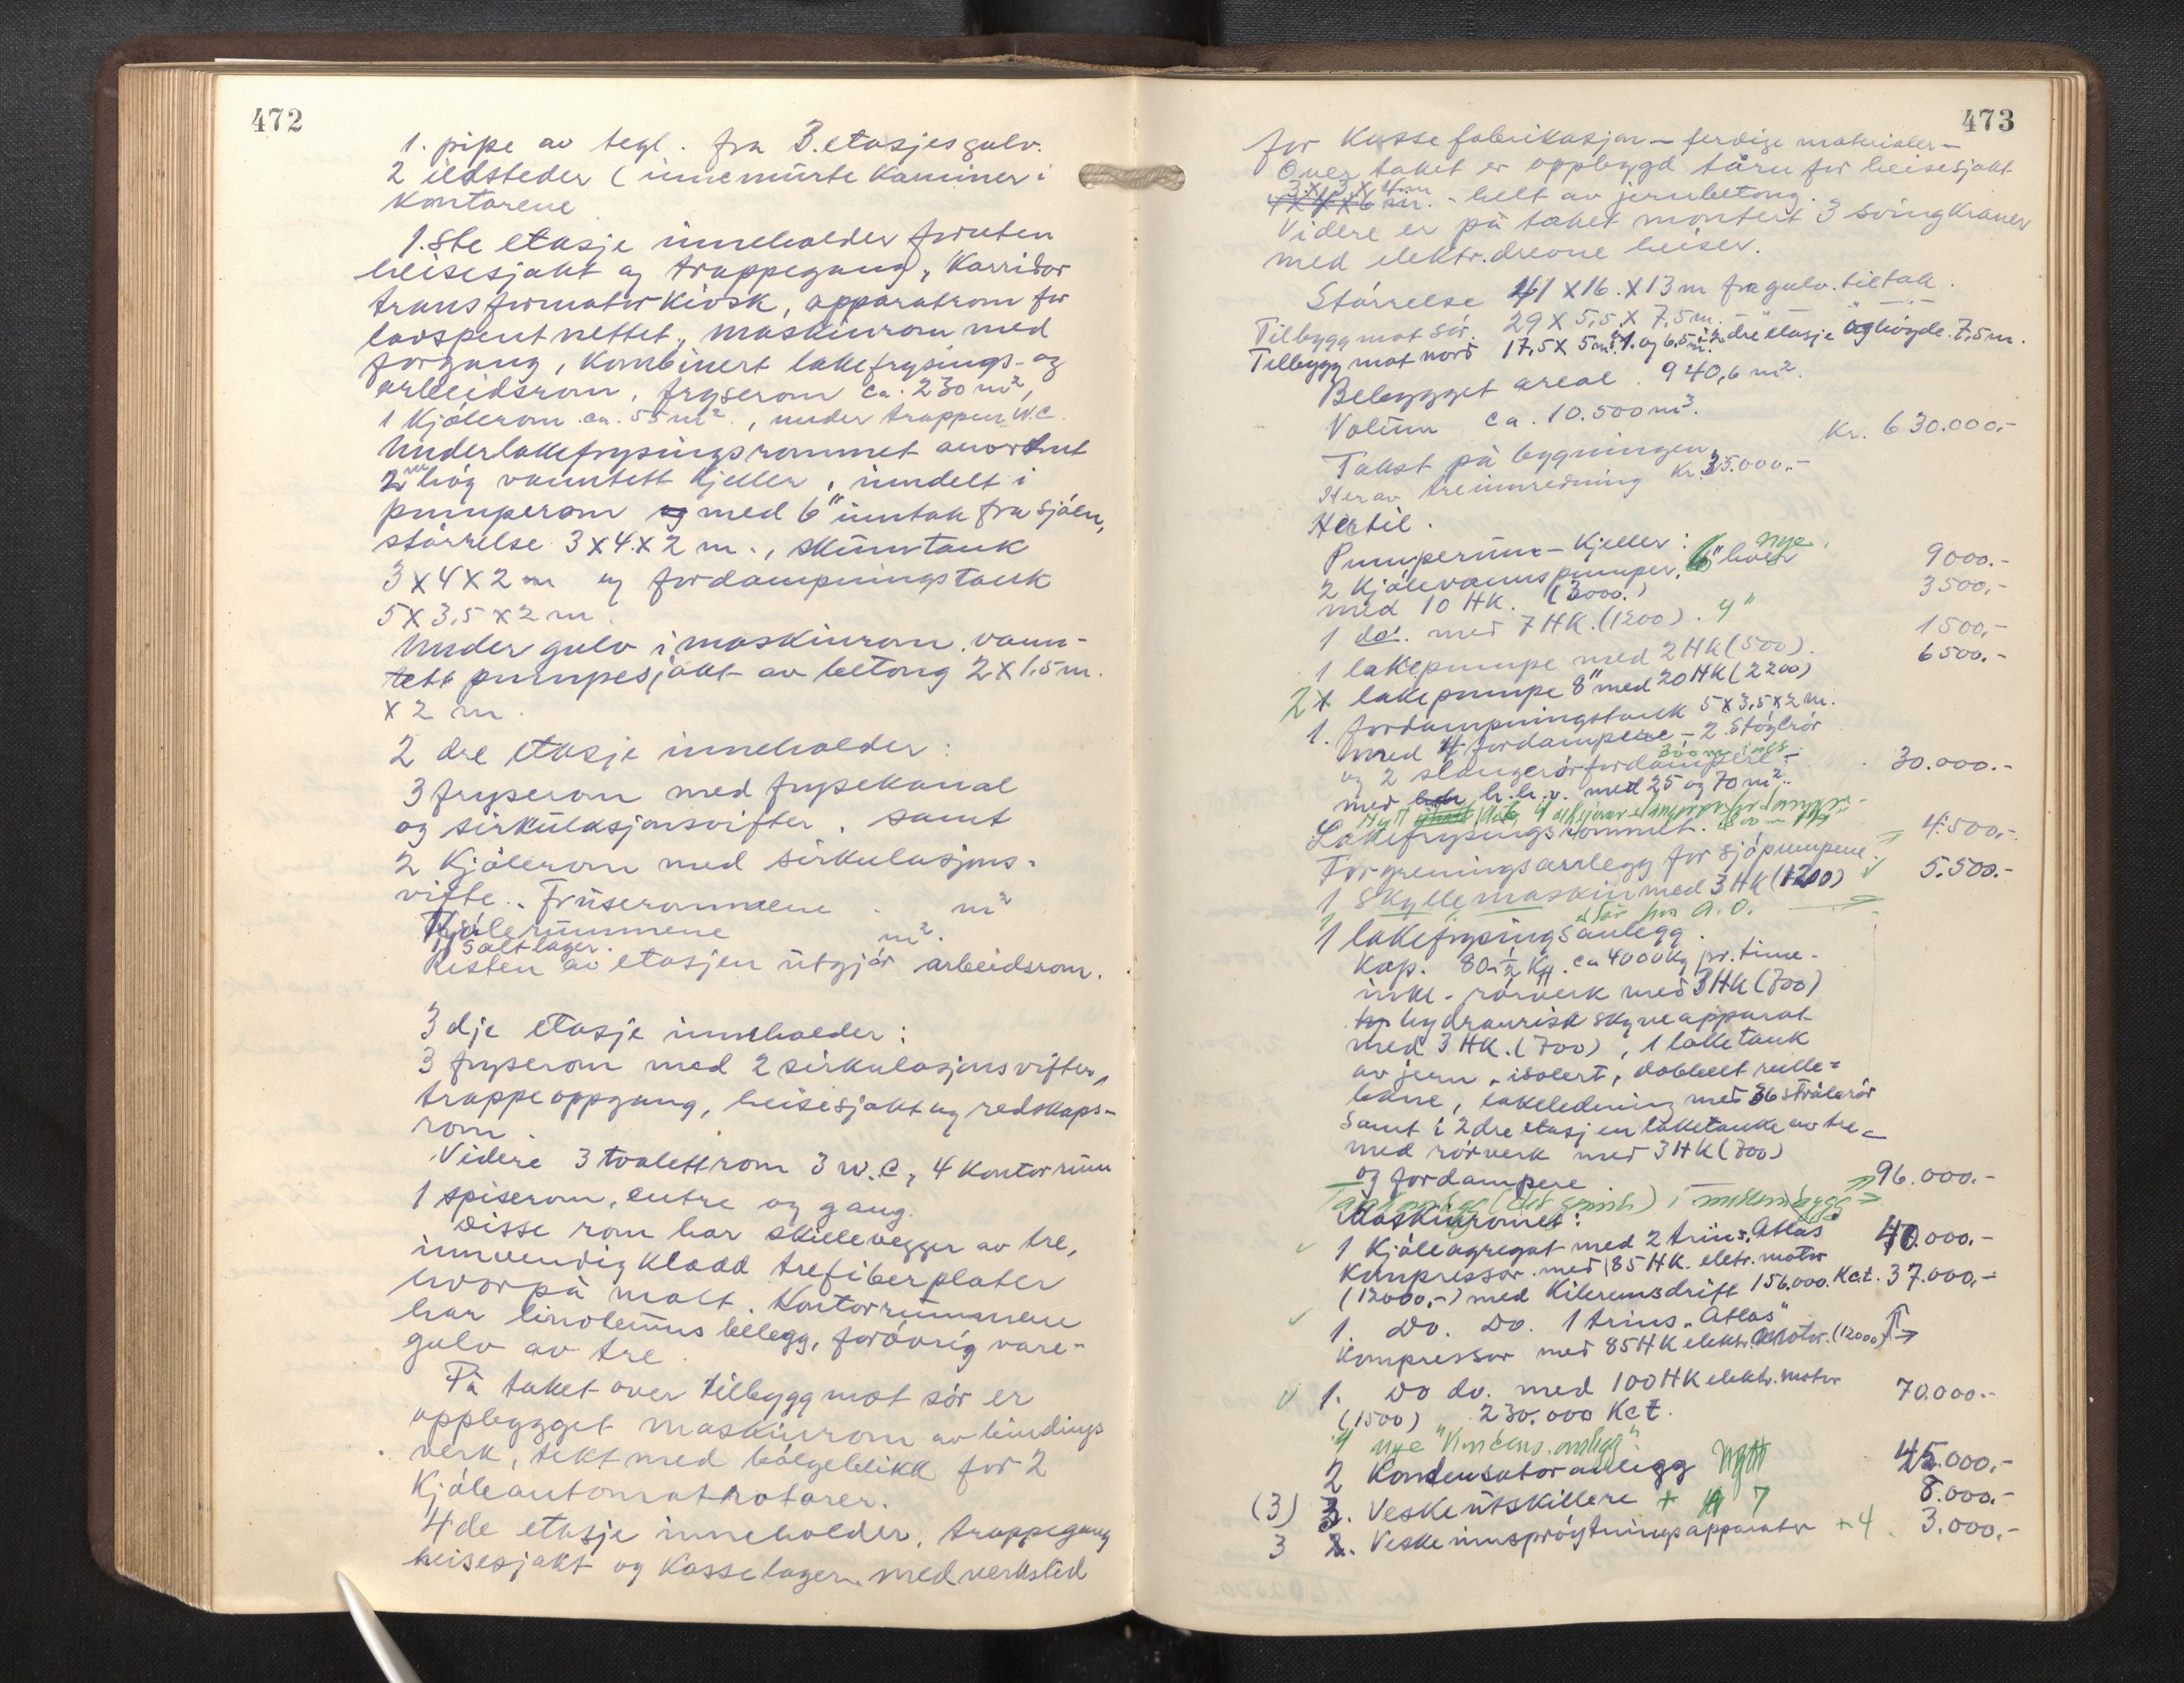 472
1. pipe av tegl. fra 3. etasjes gulv.
2 ildsteder (innemurte Kaminer i
Kontorene
1.ste etasje inneholder foruten
heisesjakt og trappegang, Korridor
transformatorkiosk, apparatrom for
lavspent nettet, maskinrom med
forgang, Kombinert lakefrysings- og
arbeidsrom, fryserom ca. 230 m²,
1 Kjølerom ca. 55 m², under trappen W.C.
Underlakefrysingsrommet anordnet
2 m høg vanntett Kjeller, inndelt i
pumperom med 6" inntak fra sjøen,
størrelse 3 x 4 x 2 m., skumtank
3 x 4 x 2 m og fordampningstank
5 x 3,5 x 2 m.
Under gulv i maskinrom. vann-
tett pumpesjakt av betong 2 x 1,5 m.
x 2 m.
2 dre etasje inneholder:
3 fryserom med frysekanal
og sirkulasjonsvifter. samt
2 Kjølerom med sirkulasjons-
vifte. Fruserommene . m²
Kjølerummene m².
1 Saltlager.
Resten av etasjen utgjør arbeidsrom.
3 dje etasje inneholder:
3 fryserom med 2 sirkulasjonsvifter,
trappeoppgang, heisesjakt og redskaps-
rom.
Videre 3 toalettrom 3 W.C, 4 Kontorrum
1 spiserom, entre og gang.
Disse rom har skillevegger av tre,
innvendig kledd trefiberplater
hvorpå malt. Kontorrummene
har linoleums belegg, forøvrig vare-
gulv av tre.
På taket over tilbygg mot sør er
oppbygget maskinrom av bindings
verk, tekt med bølgeblikk for 2
Kjøleautomatrotorer.
4 de etasje inneholder, trappegang
heisesjakt og Kasselager. med verksted
473
for Kassefabrikasjon – ferdige materialer –
Over taket er oppbygd tårn for heisesjakt
3 x 3 x 4 m
4 x 4 x 6 m. - helt av jernbetong.
Videre er på taket montert 3 svingkraner
med elektr. drevne heiser.
Størrelse 41 x 16. x 13 m fra gulv. til tak.
Tilbygg mot sør. 29 x 5,5 x 7,5 m. - " - " -
Tilbygg mot nord 17,5 x 5 m i 1. og 6,5 m i 2 dre etasje og høyde. 7,5 m.
Bebygget areal. 940,6 m².
Volum ca. 10.500 m³.
Takst på bygningen, Kr. 630.000,-
Herav treinnredning Kr. 35.000.-
Hertil.
Pumperum - Kjeller: nye.
2 Kjølevannspumper, 6" hver
med 10 HK. (3000.) 9000.-
1 do. med 7 HK. (1200). 4" 3500,-
1 lakepumpe med 2 HK (500). 1500,-
2 x lakepumpe 8" med 20 HK (2200) 6500.-
1. fordampningstank 5 x 3,5 x 2 m.
med 4 fordampere - 2 Stógrør
og 2 slangerørfordampere -
med h.h.v. med 25 og 70 m². 30.000.-
Nytt
Lakefrysingsrommet.
Forgreningsanlegg for sjøpumpene. 4.500,-
1 Skyllemaskin med 3 HK (1200) 5.500.-
A.O.
1 lakefrysingsanlegg.
Kap. 80 ½ Kg. ca 4000 kg pr. time.
inkl. rørverk med 3 HK (700)
hydraurisk skyveapparat
med 3 HK. (700), 1 laketank
av jern, isolert, dobbelt rulle-
bane, lakeledning med 36 strålerør
samt i 2dre etasje en laketank av tre -
med rørverk med 3 HK (700)
og fordampere 96.000.-
Maskinromet:
1 Kjøleagregat med 2 trins. Atlas 40.000.-
Kompressor. med 185 HK. eletr. motor
(12000,-) med Kileremsdrift 156.000. Kct. 37.000,-
1. Do. Do. 1 trins „Atlas"
Kompressor med 85 HK elektr. motor. (12000)
1. Do do. med 100 HK elektr. motor 70.000.-
(1500) 230.000 Kct.
4 nye "Kondens. anlegg".
2 Kondensatoranlegg Nytt 45.000,-
(3) 3. Veskeutskillere + 7 8.000.-
3 2. Veskeinnsprøytningsapparater + 4. 3.000,-